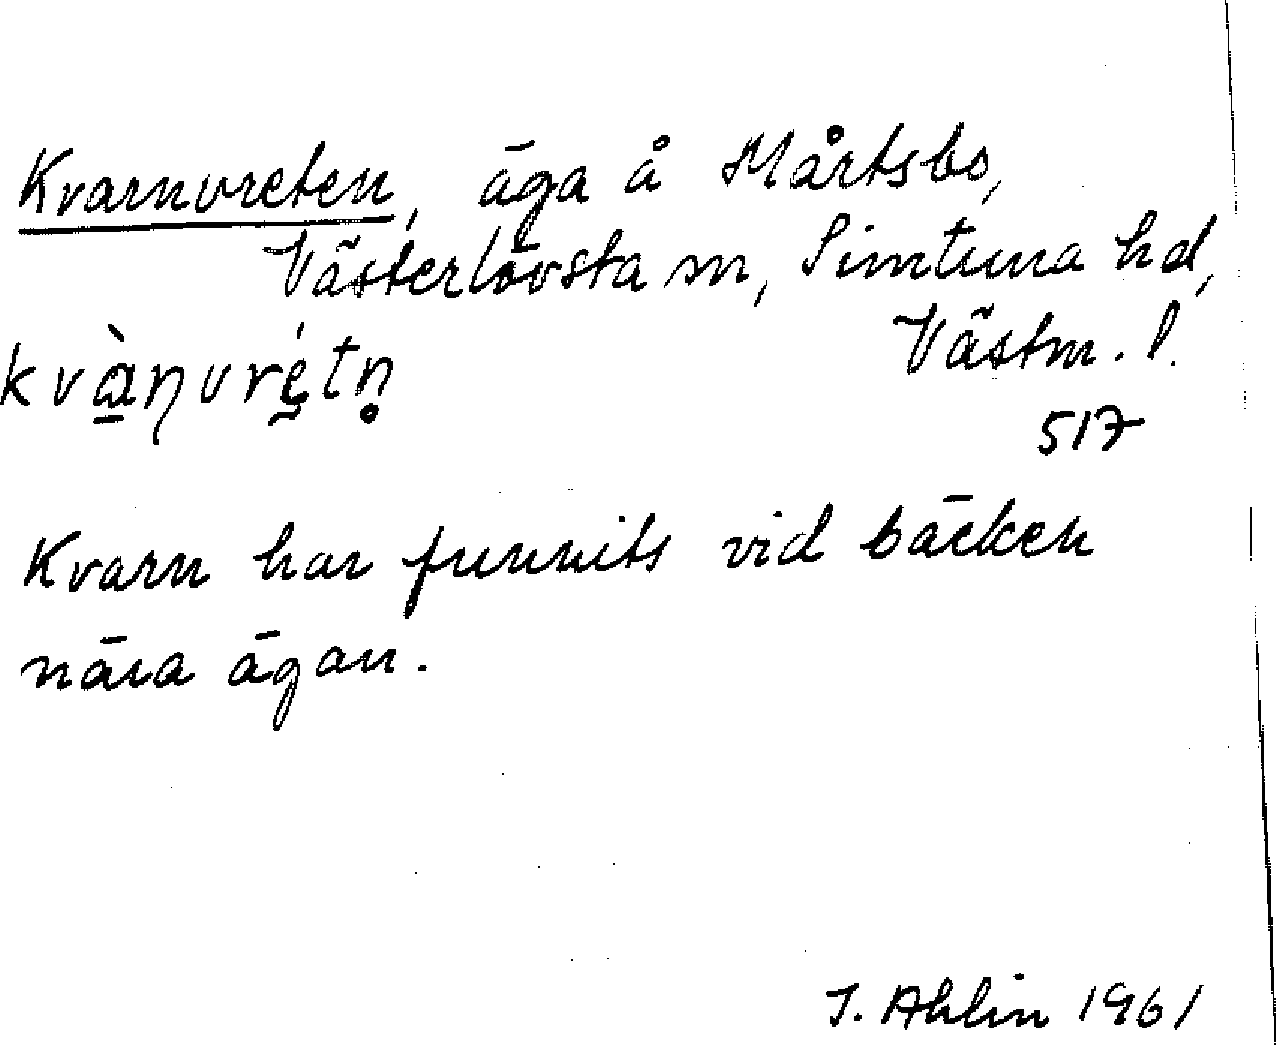 Kvarnvreten, äga å Mårtsbo,
Västerlövsta sn, Simtuna hd,
Västm. l.
kvà̱ꞃvré̱tn̥
517
Kvarn har funnits vid bäcken
nära ägan.
I. Ahlin 1961